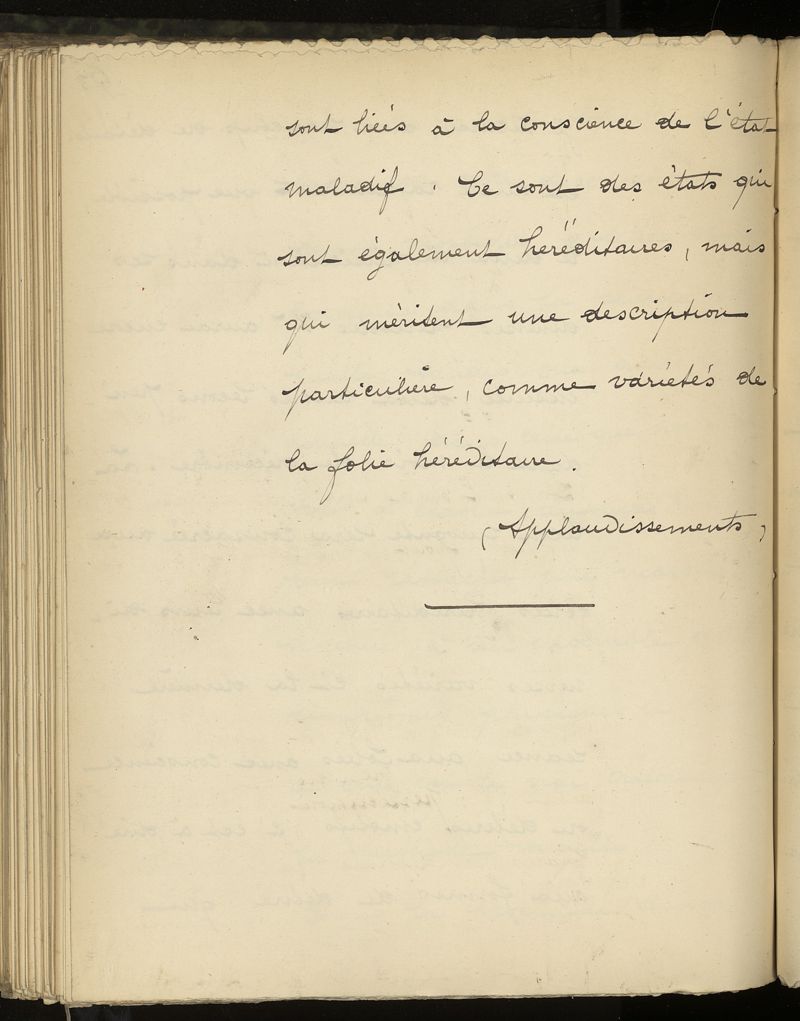 sont liées à la conscience de l'état
maladif. Ce sont des états qui
sont également héréditaires, mais
qui méritent une description
particulière, comme variétés de
la folie héréditaire.
(Applaudissements)